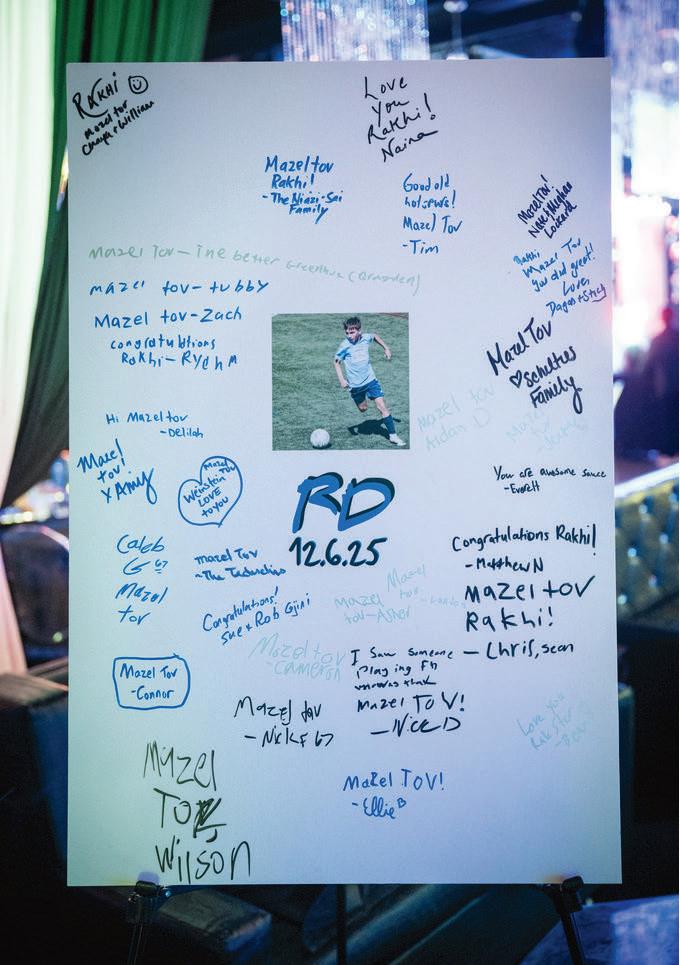 Rakhi
Mazel tov
Chaya + William
Love
You
Rakhi!
Naina
Mazel tov
Rakhi!
- The Niazi-Sai
Family
Good old
Mazel Tov
- Tim
Mazel Tov!
Mazel Tov - The better
mazel tov - tubby
Mazel tov - Zach
congratulations
Rakhi - Rydhm
Rakhi
Mazel Tov
You did great!
Love,
Mazel Tov
Family
Mazel tov
Aidan D
Hi Mazel tov
- Delilah
Mazel
tov!
X Amy
Mazel Tov
Weinstein
LOVE
to you
You are awesome sauce
- Everett
RD
12.6.25
Caleb
G 67
Mazel
tov
Mazel Tov
- The
Congratulations!
Sue + Rob Gjini
Mazel
tov
Mazel
tov - Asher
Congratulations Rakhi!
- Matthew N
Mazel tov
Rakhi!
- Chris, sean
Mazel tov
- Cameron
I saw someone
Playing
Mazel TOV!
- Nick D
Mazel Tov
- Connor
Mazel tov
- Nick F 67
Love you
Mazel
Tov
Wilson
Mazel TOV!
- Ellie B